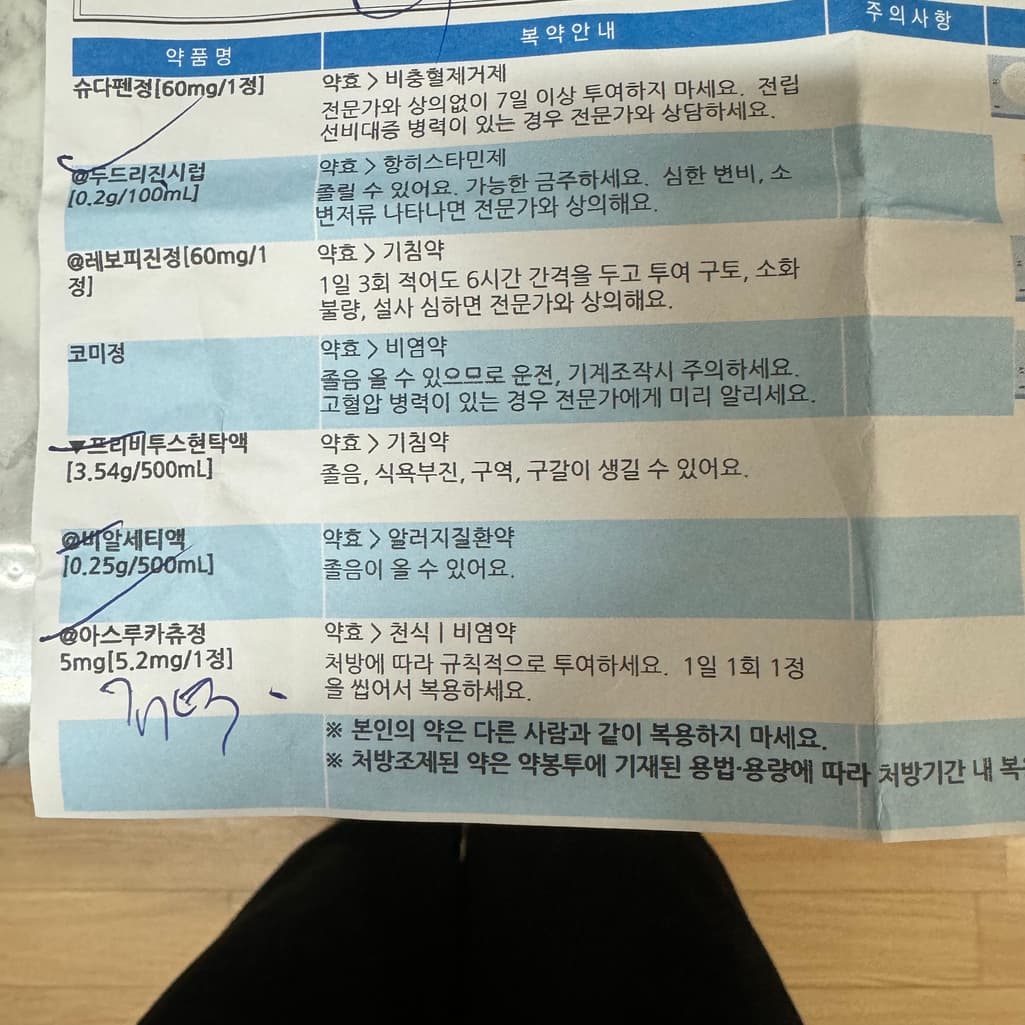 약품명 복약안내 주의사항
슈다펜정[60mg/1정] 약효 > 비충혈제거제
전문가와 상의없이 7일 이상 투여하지 마세요. 전립
선비대증 병력이 있는 경우 전문가와 상담하세요.
@두드리진시럽 약효 > 항히스타민제
[0.2g/100mL] 졸릴 수 있어요. 가능한 금주하세요. 심한 변비, 소
변저류 나타나면 전문가와 상의해요.
@레보피진정[60mg/1 약효 > 기침약
정] 1일 3회 적어도 6시간 간격을 두고 투여 구토, 소화
불량, 설사 심하면 전문가와 상의해요.
코미정 약효 > 비염약
졸음 올 수 있으므로 운전, 기계조작시 주의하세요.
고혈압 병력이 있는 경우 전문가에게 미리 알리세요.
▼프리비투스현탁액 약효 > 기침약
[3.54g/500mL] 졸음, 식욕부진, 구역, 구갈이 생길 수 있어요.
@비알세티액 약효 > 알러지질환약
[0.25g/500mL] 졸음이 올 수 있어요.
@아스루카츄정 약효 > 천식 | 비염약
5mg[5.2mg/1정] 처방에 따라 규칙적으로 투여하세요. 1일 1회 1정
을 씹어서 복용하세요.
※ 본인의 약은 다른 사람과 같이 복용하지 마세요.
※ 처방조제된 약은 약봉투에 기재된 용법·용량에 따라 처방기간 내